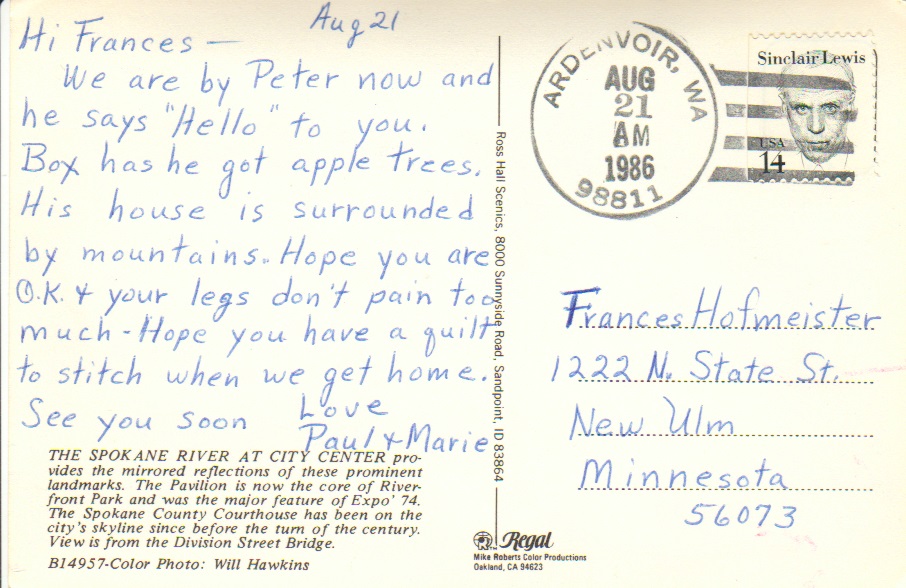 Aug 21
Hi Frances —
We are by Peter now and
he says "Hello" to you.
Box has he got apple trees.
His house is surrounded
by mountains. Hope you are
O.K. & your legs don't pain too
much - Hope you have a quilt
to stitch when we get home.
See you soon
Love
Paul & Marie
THE SPOKANE RIVER AT CITY CENTER pro-
vides the mirrored reflections of these prominent
landmarks. The Pavilion is now the core of River-
front Park and was the major feature of Expo' 74.
The Spokane County Courthouse has been on the
city's skyline since before the turn of the century.
View is from the Division Street Bridge.
B14957-Color Photo: Will Hawkins
Ross Hall Scenics, 8000 Sunnyside Road, Sandpoint, ID 83864
Regal
Mike Roberts Color Productions
Oakland, CA 94623
ARDENVOIR, WA
AUG
21
AM
1986
98811
Sinclair Lewis
USA
14
Frances Hofmeister
1222 N. State St.
New Ulm
Minnesota
56073